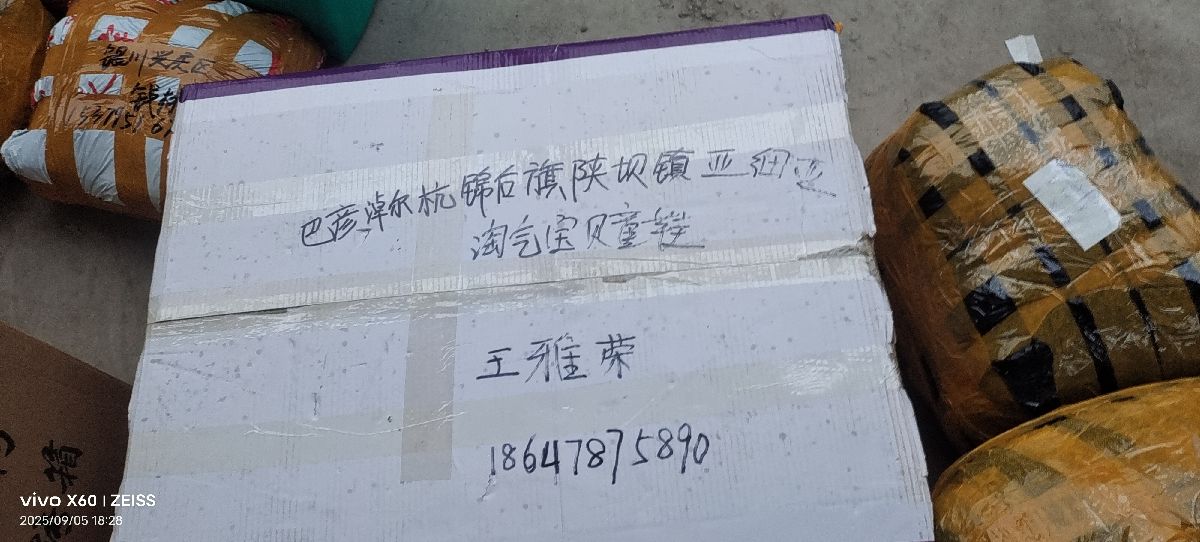 银川兴庆区
巴彦淖尔杭锦后旗陕坝镇亚细亚
淘气宝贝童鞋
王雅荣
18647875890
vivo X60 | ZEISS
2025/09/05 18:28